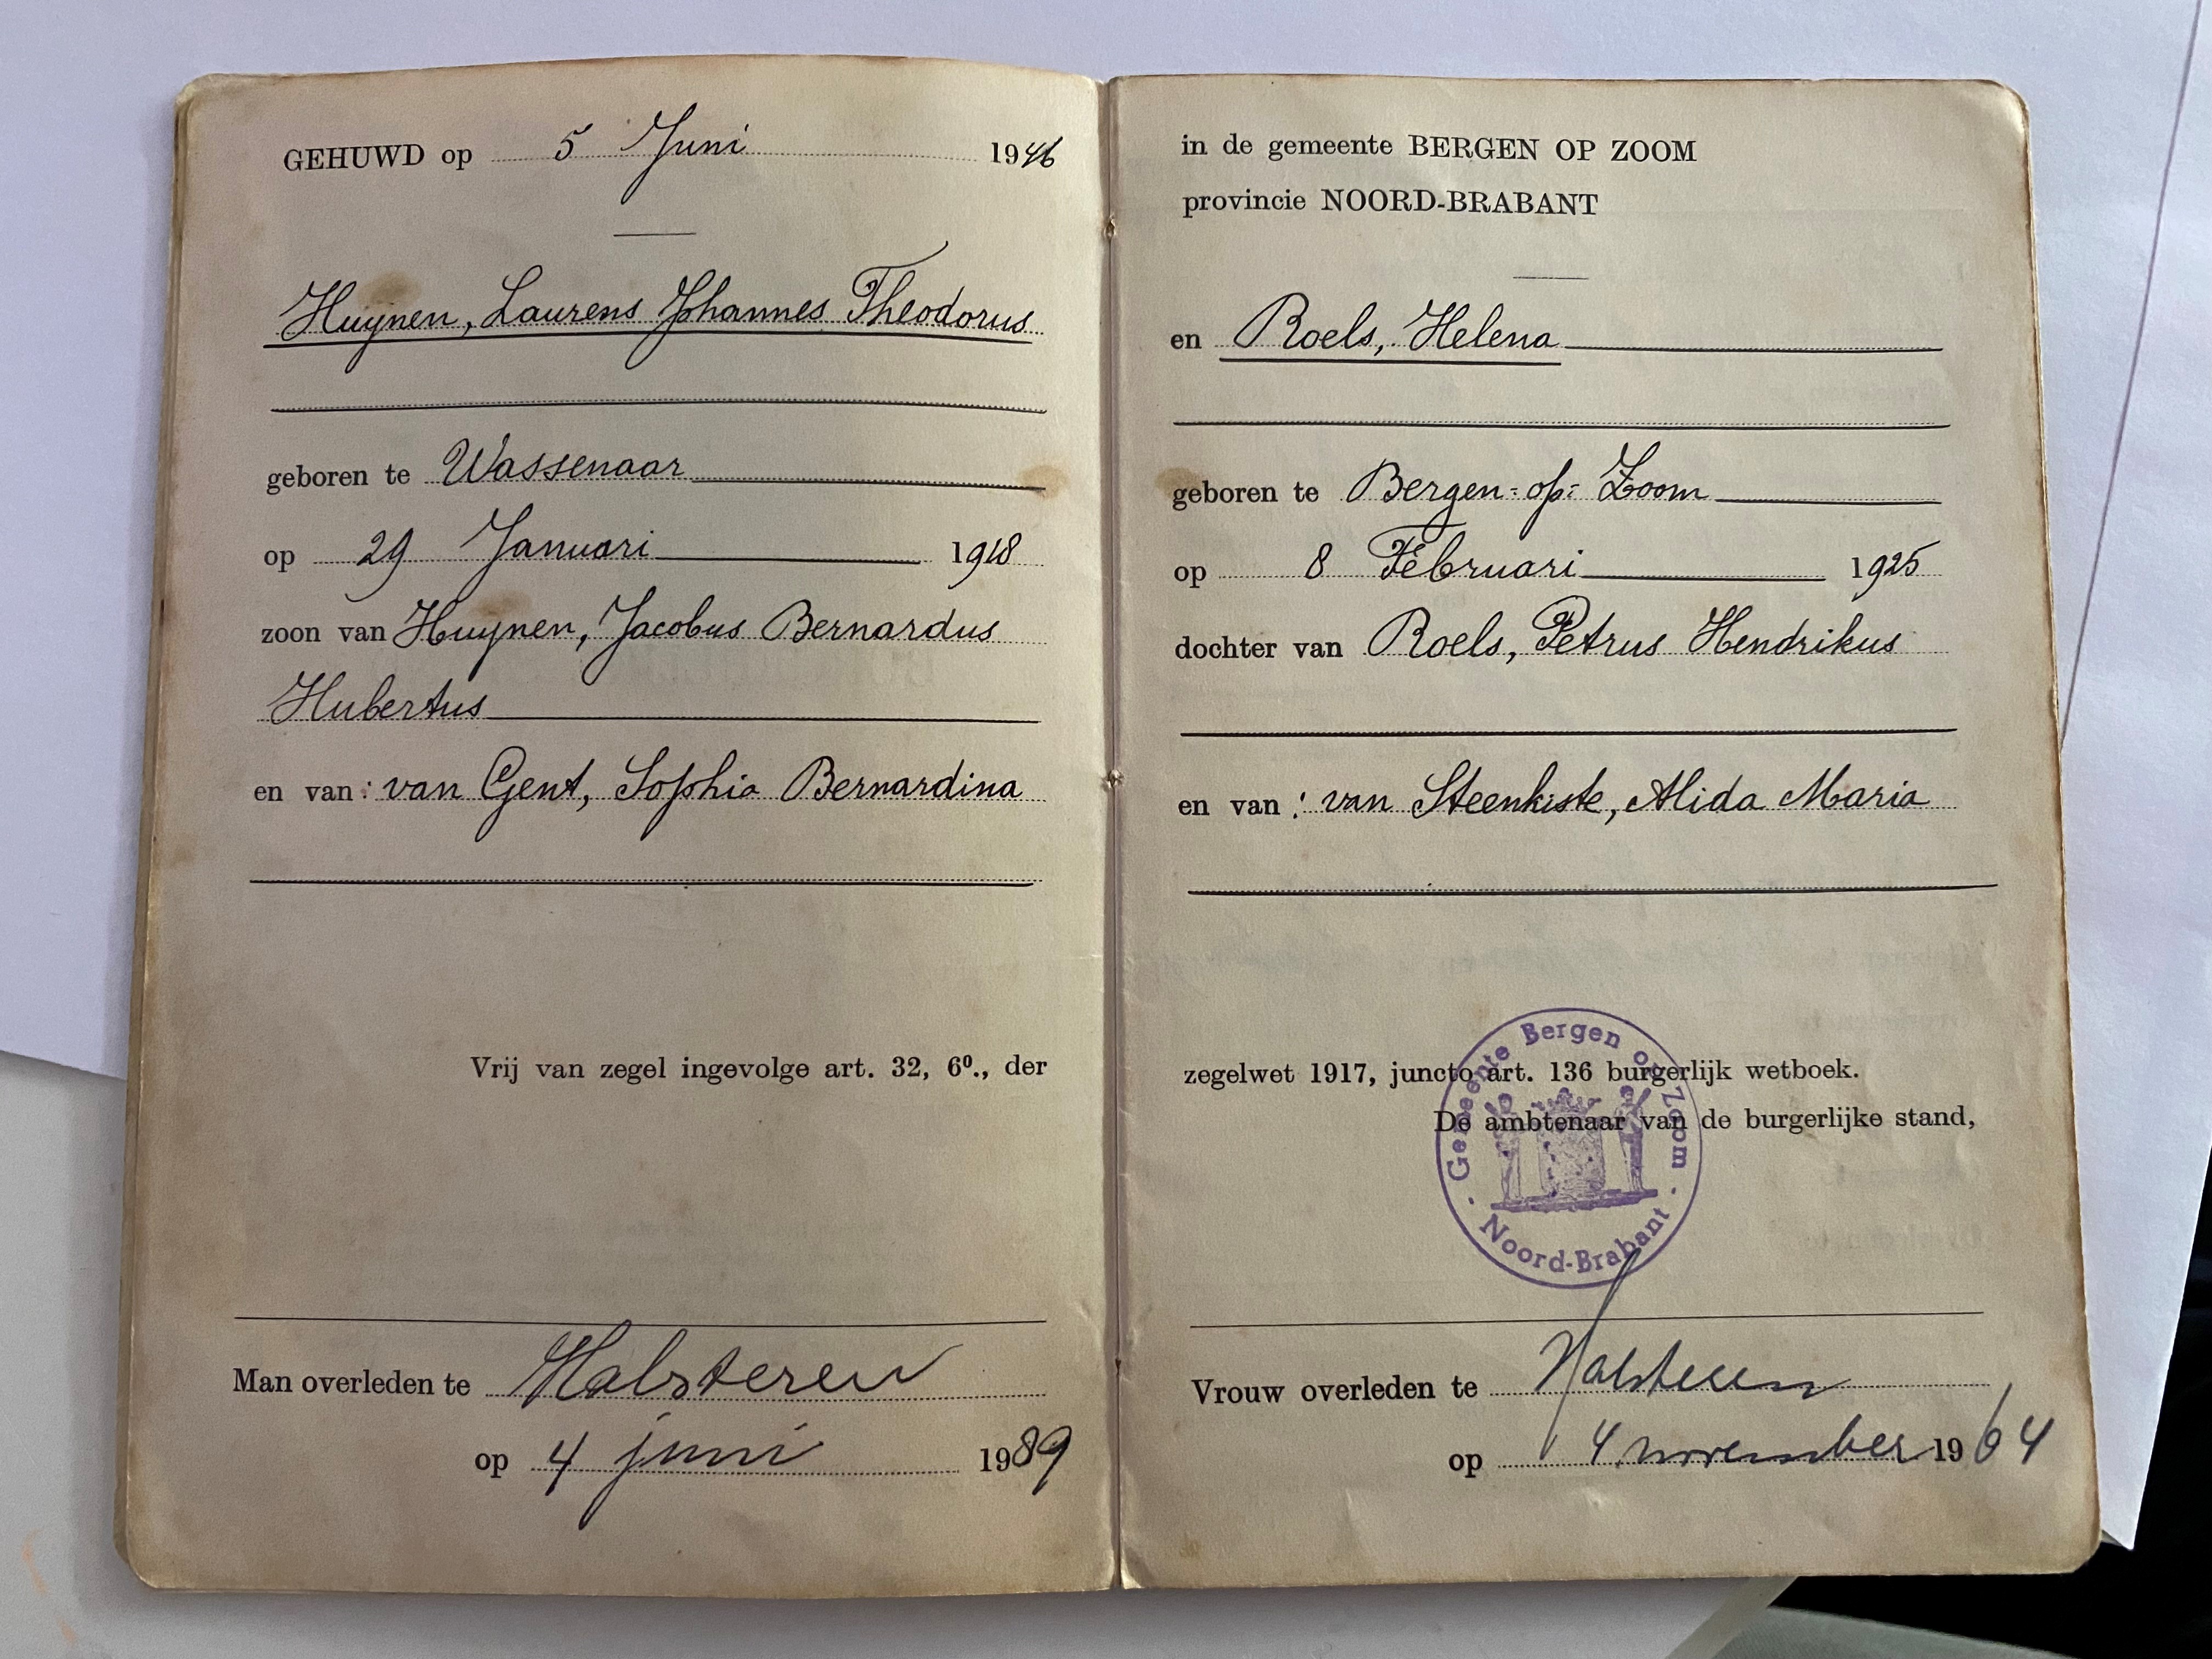 GEHUWD op 5 Juni 1946
Huynen, Laurens Johannes Theodorus
geboren te Wassenaar
op 29 Januari 1918
zoon van Huynen, Jacobus Bernardus
Hubertus
en van : van Gent, Sophia Bernardina
Vrij van zegel ingevolge art. 32, 6⁰., der
Man overleden te Halsteren
op 4 juni 1989
in de gemeente BERGEN OP ZOOM
provincie NOORD-BRABANT
en Roels, Helena
geboren te Bergen-op-Zoom
op 8 Februari 1925
dochter van Roels, Petrus Hendrikus
en van : van Steenkiste, Alida Maria
zegelwet 1917, juncto art. 136 burgerlijk wetboek.
De ambtenaar van de burgerlijke stand,
Gemeente Bergen op Zoom
- Noord-Brabant -
Vrouw overleden te Halsteren
op 4 november 1964